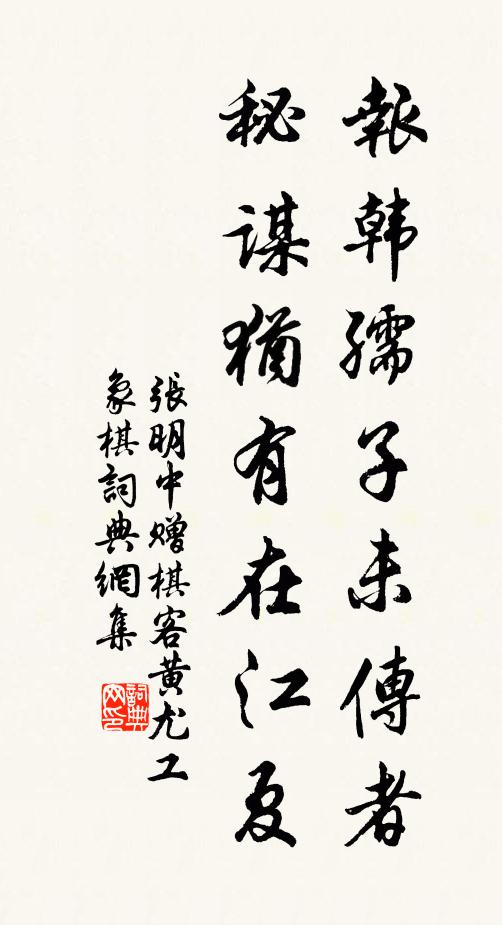 報韓孺子未傳者
秘謀猶有在江夏
張明中贈棋客黄尤工
象棋詞典網集
詞典网印